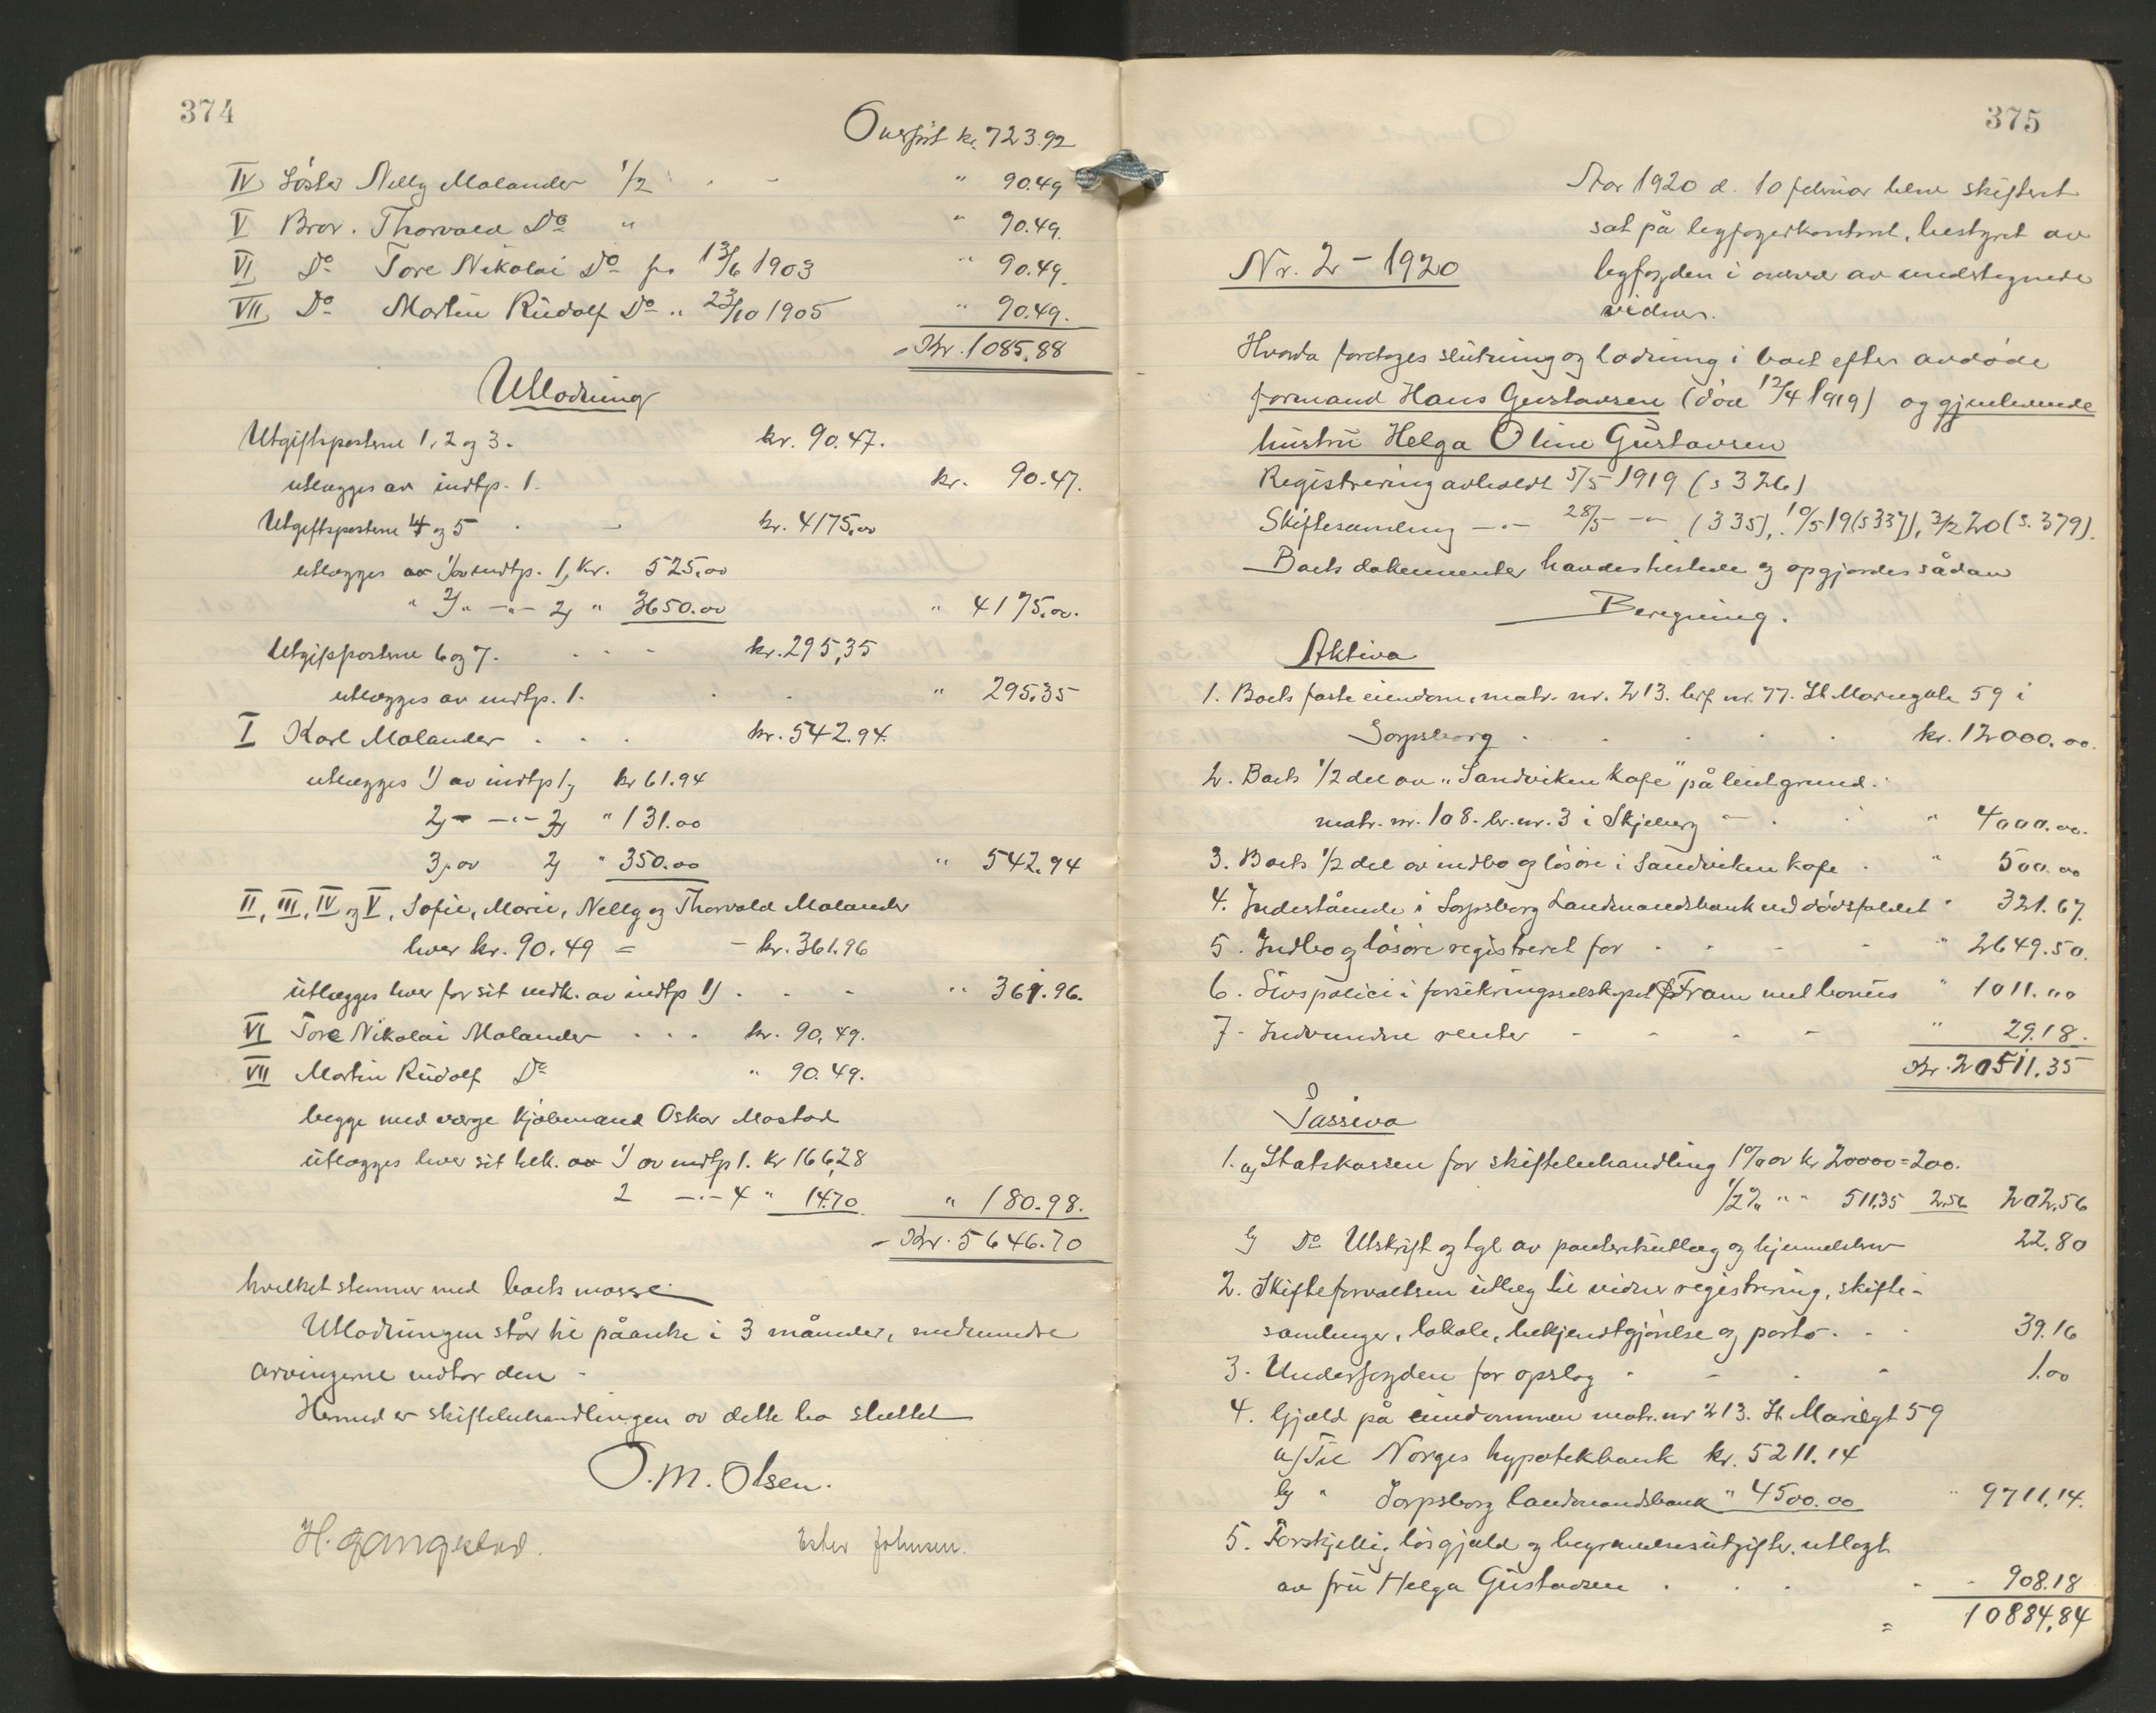 374
Overført kr. 723.92
IV Søster Nelly Molander 1/2 " 90.49
V Bror. Thorvald Do " " 90.49.
VI Do Tore Nikolai Do fø. 13/6 1903 " 90.49.
VII Do Martin Rudolf Do " 23/10 1905 " 90.49.
Kr. 1085.88
Utlodning
Utgiftsposterne 1, 2 og 3. kr. 90.47.
utlægges av indtp. 1. kr. 90.47.
Utgiftsposterne 4 og 5 kr. 4175.00
utlægges 1/ av indtp. 1, kr. 525.00
" 2/ " -"- 2, " 3650.00 " 4175.00.
Utgiftsposterne 6 og 7. kr. 295,35
utlægges av indtp. 1. " 295.35
I Karl Molander kr. 542.94.
utlægges 1) av indtp 1, kr 61.94
2, -"- 3, " 131.00
3, av 2, " 350.00 " 542.94
II, III, IV og V, Sofie, Marie, Nelly og Thorvald Molander
hver kr. 90.49 = - kr. 361.96
utlægges hver for sit vedk. av indtp 1) " 361.96.
VI Tore Nikolai Molander kr. 90,49.
VII Martin Rudolf Do " 90.49.
begge med verge kjøbmand Oskar Mostad
utlægges hver sit bek. 1) av indtp 1. kr 166,28
2 -"- 4 " 14.70 " 180.98.
Kr. 5646.70
hvilket stemmer med boets masse.
Utlodningen står til påanke i 3 måneder, medmindre
arvingerne vedtar den -
Hermed er skiftebehandlingen av dette bo sluttet
O. M. Olsen.
H. Gangstad. Ester Johnsen.
375
Aar 1920 d. 10 februar blev skifteret
sat på byfogedkontoret, bestyret av
Nr. 2 - 1920 byfogden i overvær av undertegnede
vidner.
Hvorda foretoges slutning og lodning i boet efter avdøde
formand Hans Gustavsen (død 12/4 1919) og gjenlevende
hustru Helga Oline Gustavsen
Registrering avholdt 5/5 1919 (s 326)
Skiftesamling -"- 28/5 -"- (335), 10/5 19 (s 337), 3/2 20 (s. 379).
Boets dokumenter havdes tilstede og opgjordes sådan
Beregning.
Aktiva
1. Boets faste eiendom, matr. nr. 213. brf nr. 77. St. Mariegate 59 i
Sarpsborg kr. 12000.00.
2. Boets 1/2 del av "Sandviken kafe" på leiet grund.
matr. nr. 108. br. nr. 3 i Skjeberg " 4000.00.
3. Boets 1/2 del av indbo og løsøre i Sandviken kafe " 500.00
4. Indestående i Sarpsborg Landmandsbank ved dødsfaldet " 321.67.
5. Indbo og løsøre registreret for " 2649.50.
6. Livspolice i forsikringsselskapet Fram med bonus " 1011.00
7. Indvundne renter " 29.18.
Kr. 20511.35
Passiva
1. a) Statskassen for skiftebehandling 1% av kr 20000 = 200.
1/2% " " 511,35 2.56 202.56
b) Do Utskrift og tgl av panteretsutlæg og hjemmelsbrev 22.80
2. Skifteforvalteren utlæg til vidner registrering, skifte-
samlinger, lokale, bekjendtgjørelse og porto. 39.16
3. Underfogden for opslag 1.00
4. Gjæld på eiendommen matr. nr 213. St. Mariegt 59
a) Til Norges hypotekbank kr. 5211.14
b) " Sarpsborg Landmandsbank " 4500.00 " 9711.14.
5. Forskjellig løsgjæld og begravelsesutgifter, utlagt
av fru Helga Gustavsen 908.18
= 10884,84